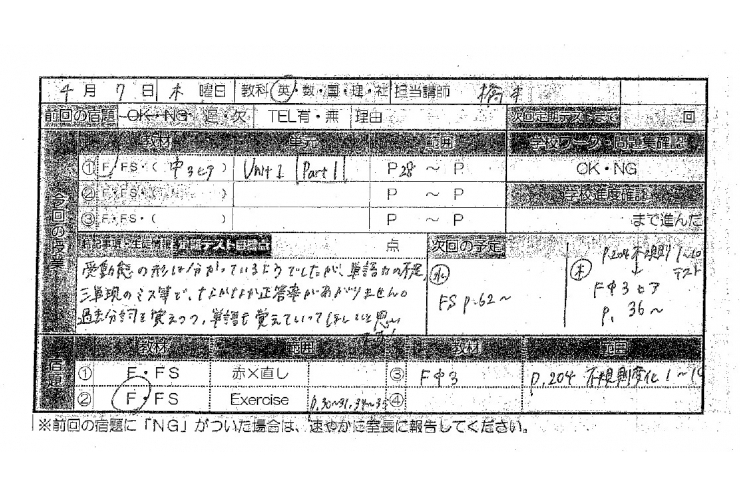 4月 7日 木 曜日 教科 英・数・国・理・社 担当講師
前回の宿題 OK・NG 遅・欠 TEL有・無 理由 次回定期テストまで 回
教材 単元 範囲 学校ワーク・問題集確認
① F・FS・( 中3ヒア ) Unit 1 Part 1 P 28 ～ P OK・NG
② F・FS・( ) P ～ P 学校進度確認
③ F・FS・( ) P ～ P まで進んだ
今回の授業
特記事項・生徒情報 単元テスト得点 点 次回の予定
受動態の形は分かっているようでしたが、単語力の不足、
三単現のミス等で、なかなか正答率があがりません。
過去分詞を覚えつつ、単語も覚えていってほしいと思い
ます!
㊌ FS p.62～
㊍ p.204 不規則 1～10 テスト
↓
F中3ヒア
p. 36～
宿題
教材 範囲 教材 範囲
① F・FS 赤×直し ③ F中3 p.204 不規則変化 1～10
② F・FS Exercise p.30～31, 34～35 ④
※前回の宿題に「NG」がついた場合は、速やかに室長に報告してください。